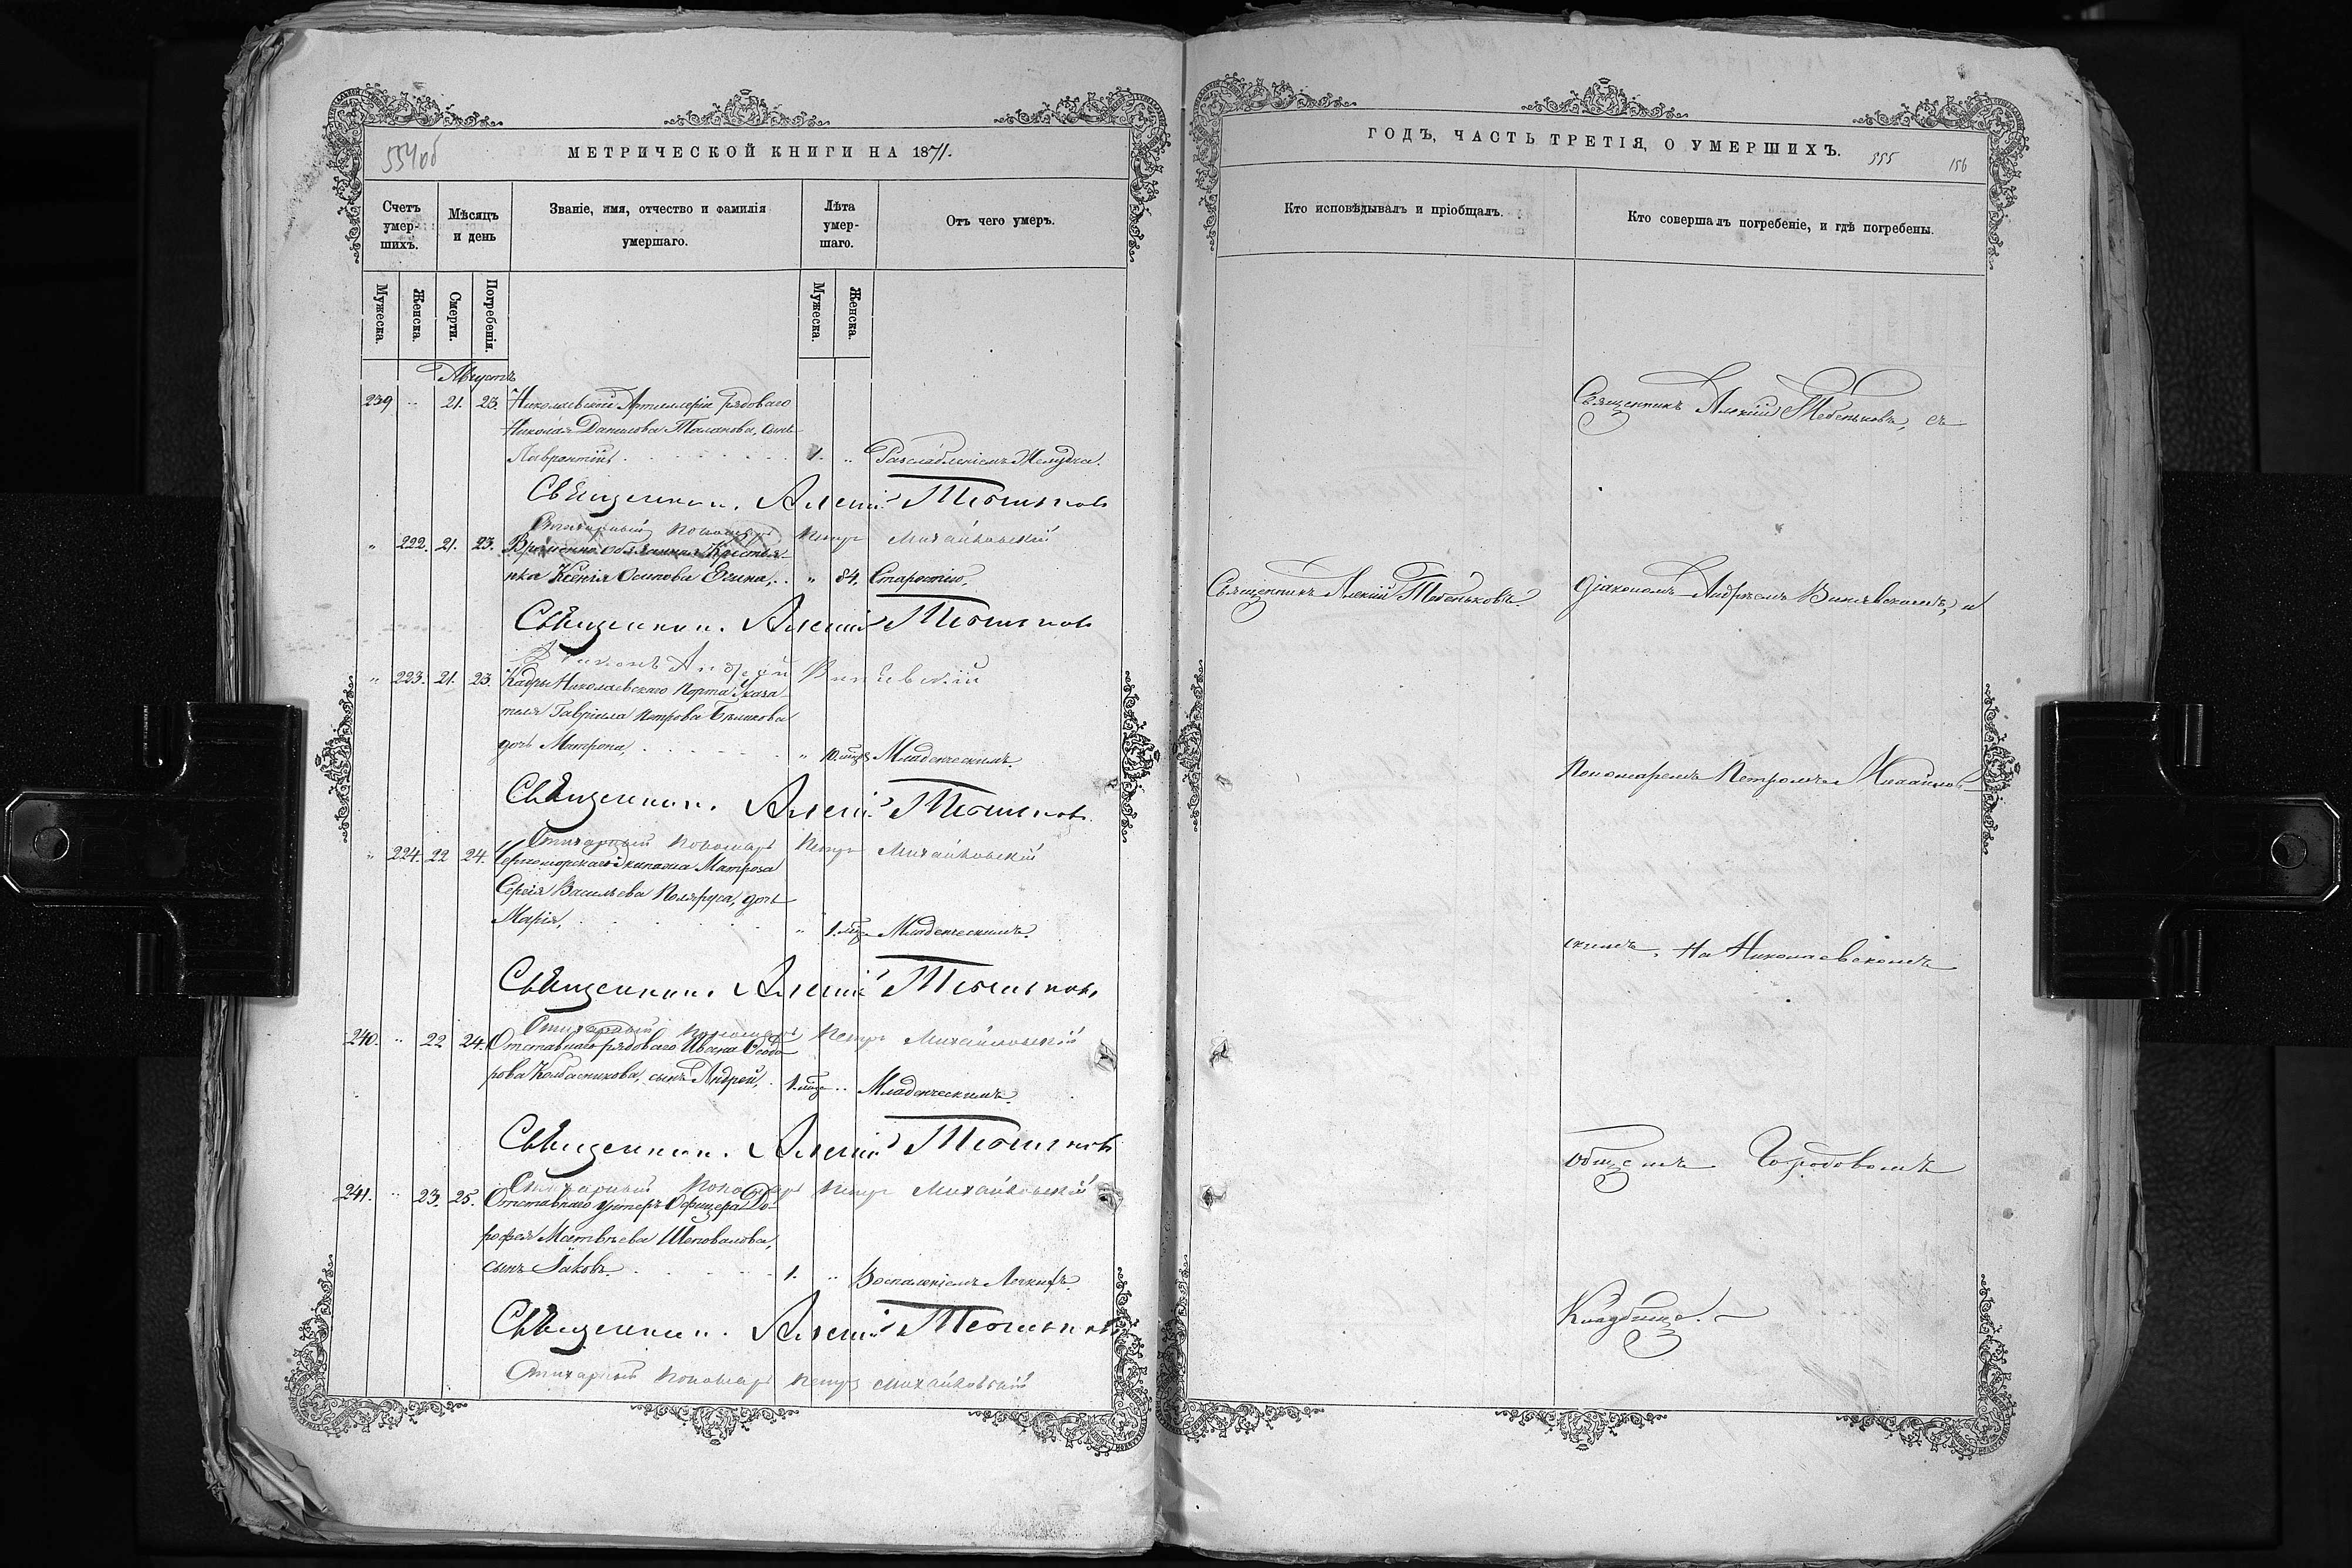 554об
МЕТРИЧЕСКОЙ КНИГИ НА 1871.
Счетъ умер-шихъ.
Мѣсяцъ и день
Званіе, имя, отчество и фамилія умершаго.
Лѣта умер-шаго.
Отъ чего умеръ.
Мужеска.
Женска.
Смерти.
Погребенія.
Мужеска.
Женска.
Августъ
239 " 21. 23. Николаевской Артиллеріи рядоваго
Николая Данилова Таланова, сынъ
Лаврентій 1. " Разслабленіемъ Желудка.
Священникъ Алексій Тебеньковъ
Стихарный пономарь Петръ Михайловскій
" 222. 21. 23. Временно обязанная Крестьян-
нка Ксенія Осипова Есина, " 84. Старостію.
Священникъ Алексій Тебеньковъ
Діаконъ Андрей Винѣвскій
" 223. 21. 23. Кадры Николаевскаго Порта Указа-
теля Гавріила Петрова Бѣликова
дочь Матрона, " 10. мцъ Младенческимъ.
Священникъ Алексій Тебеньковъ
Стихарный пономарь Петръ Михайловскій
" 224. 22 24. Черноморскаго Экипажа Матроза
Сергія Васильева Поляруса, дочь
Марія, " 1. мцъ Младенческимъ.
Священникъ Алексій Тебеньковъ
Стихарный пономарь Петръ Михайловскій
240. " 22 24. Отставнаго рядоваго Ивана Ѳеодо-
рова Колбасникова, сынъ Андрей, 1. мцъ " Младенческимъ.
Священникъ Алексій Тебеньковъ
Стихарный пономарь Петръ Михайловскій
241. " 23. 25. Отставнаго унтеръ Офицера До-
рофея Матвѣева Шаповалова,
сынъ Іаковъ. 1. " Воспаленіемъ Легкихъ.
Священникъ Алексій Тебеньковъ
Стихарный пономарь Петръ Михайловскій
ГОДЪ, ЧАСТЬ ТРЕТІЯ, О УМЕРШИХЪ.
555 156
Кто исповѣдывалъ и пріобщалъ.
Кто совершалъ погребеніе, и гдѣ погребены.
Священникъ Алексій Тебеньковъ, съ
Священникъ Алексій Тебеньковъ.
Діакономъ Андреемъ Винѣвскимъ, и
Пономаремъ Петромъ Михайлов-
скимъ. На Николаевскомъ
общемъ Городовомъ
Кладбищѣ.